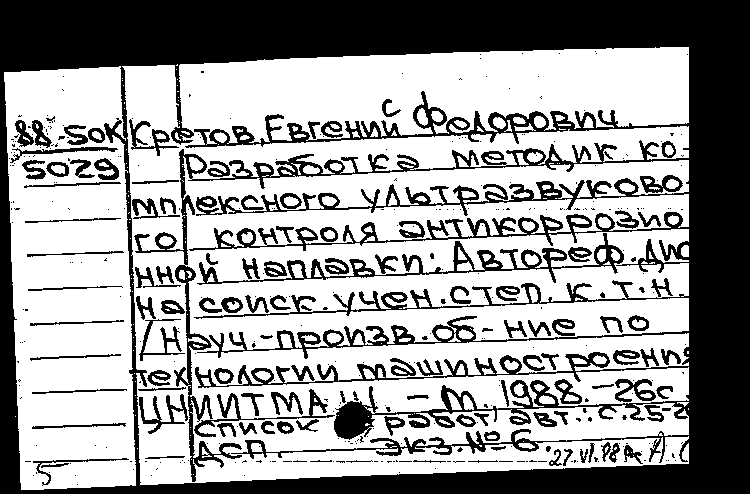 88-50К Кретов, Евгений Федорович.
5029 Разработка методик ко-
мплексного ультразвуково-
го контроля антикоррозио
нной наплавки: Автореф. дис
на соиск. учен. степ. к. т. н.
/Науч.-произв. об-ние по
технологии машиностроения
ЦНИИТМАШ. - М. 1988. - 26с.
Список работ авт.: с. 25-26
ДСП. Экз. № 6.
5 27.VI.88